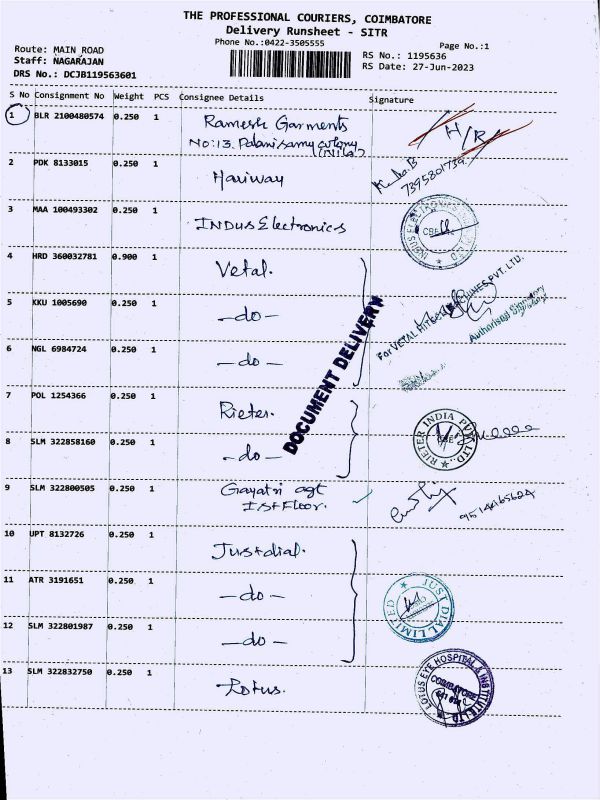 THE PROFESSIONAL COURIERS, COIMBATORE
Delivery Runsheet - SITR
Phone No.:0422-3505555
Page No.:1
Route: MAIN ROAD
Staff: NAGARAJAN
DRS No.: DCJB119563601
RS No.: 1195636
RS Date: 27-Jun-2023
S No Consignment No Weight PCS Consignee Details Signature
1 BLR 2100480574 0.250 1 Ramesh Garments H/R
No:13. Palanisamy colony
2 PDK 8133015 0.250 1 Hariway
7395801739
3 MAA 100493302 0.250 1 INDUS Electronics
4 HRD 360032781 0.900 1 Vetal.
For VETAL MACHINES PVT. LTD.
Authorised Signatory
5 KKU 1005690 0.250 1 -do-
DOCUMENT DELIVERY
6 NGL 6984724 0.250 1 -do-
7 POL 1254366 0.250 1 Rieter.
RIETER INDIA PVT. LTD.
8 SLM 322858160 0.250 1 -do-
9 SLM 322800505 0.250 1 Gayatri agt
Ist Floor.
10 UPT 8132726 0.250 1 Justdial.
11 ATR 3191651 0.250 1 -do-
JUST DIAL LIMITED
12 SLM 322801987 0.250 1 -do-
13 SLM 322832750 0.250 1 Lotus.
LOTUS EYE HOSPITAL & INSTITUTE LTD
COIMBATORE